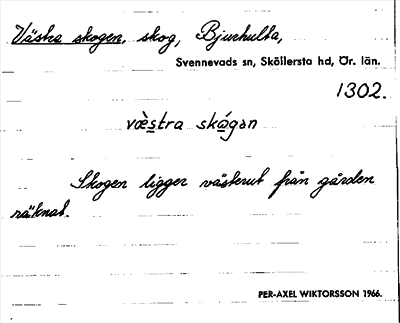 Västra skogen, skog, Bjurhulta,
Svennevads sn, Sköllersta hd, Ör. län.
1302.
væ̀stra skågən
Skogen ligger västerut från gården
räknat.
PER-AXEL WIKTORSSON 1966.